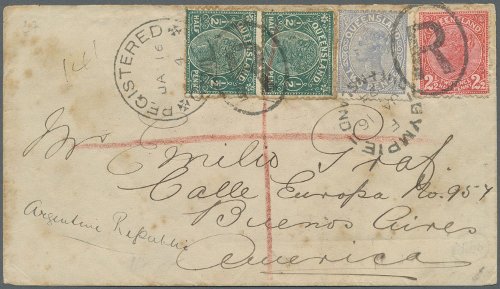 REGISTERED
JA 16
4
HALF PENNY
½D
QUEENSLAND
½D
HALF
½D
QUEENSLAND
½D
QUEENSLAND
QUEENSLAND
2½ 2½
R
GYMPIE
Mr Emilio Graf.
Calle Europa No. 957
Buenos Aires
America
Argentine Republic